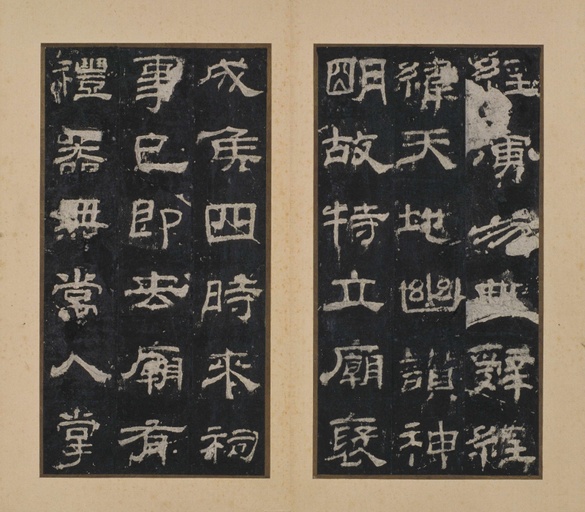 經演易繫辭經
緯天地幽讚神
明故特立廟褒
成侯四時來祠
事已即去廟有
禮器無常人掌